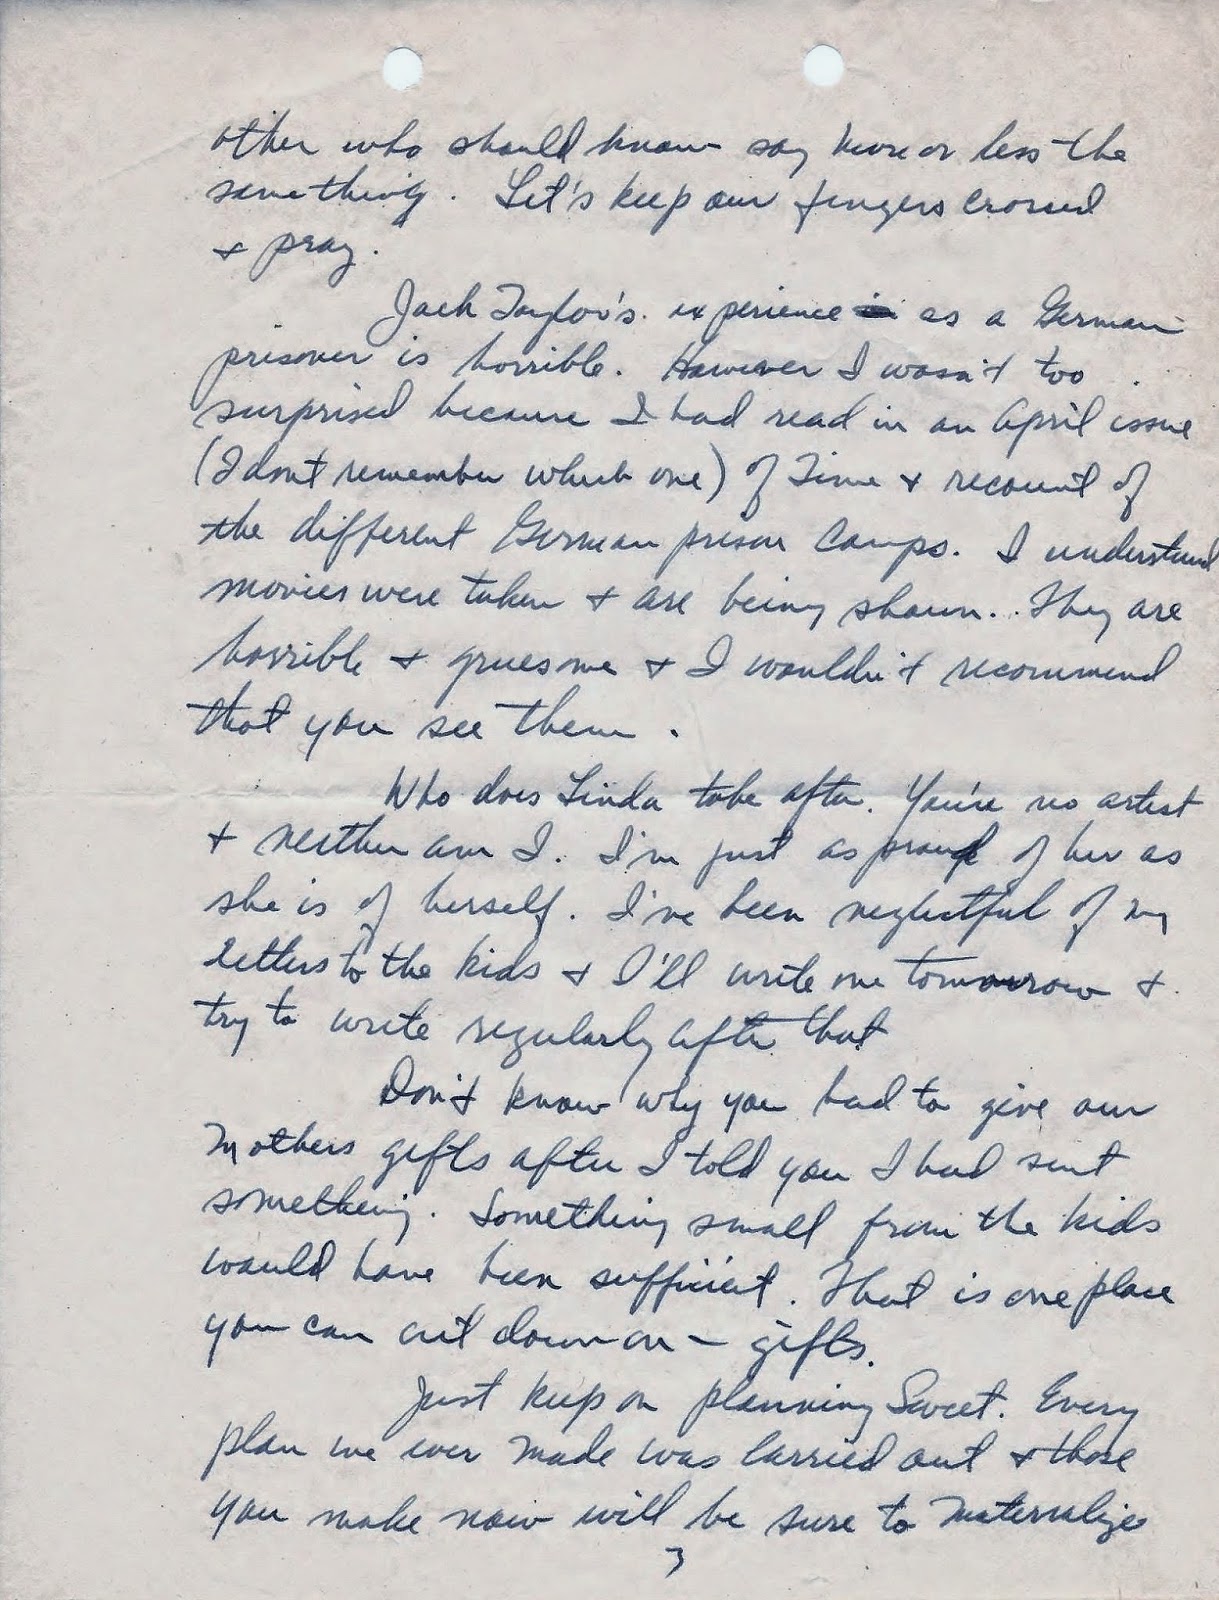 other who should know say more or less the
same thing. Let's keep our fingers crossed
+ pray.
Jack Taylor's experience as a German
prisoner is horrible. However I wasn't too
surprised because I had read in an April issue
(I dont remember which one) of Time + recount of
the different German prison camps. I understand
movies were taken + are being shown. They are
horrible + gruesome + I wouldn't recommend
that you see them.
Who does Linda take after. You're no artist
+ neither am I. I'm just as proud of her as
she is of herself. I've been neglectful of my
letters to the kids + I'll write one tomorrow +
try to write regularly after that
Don't know why you had to give our
Mothers gifts after I told you I had sent
something. Something small from the kids
would have been sufficient. That is one place
you can cut down on - gifts.
Just keep on planning Sweet. Every
plan we ever made was carried out + those
you make now will be sure to materialize
3